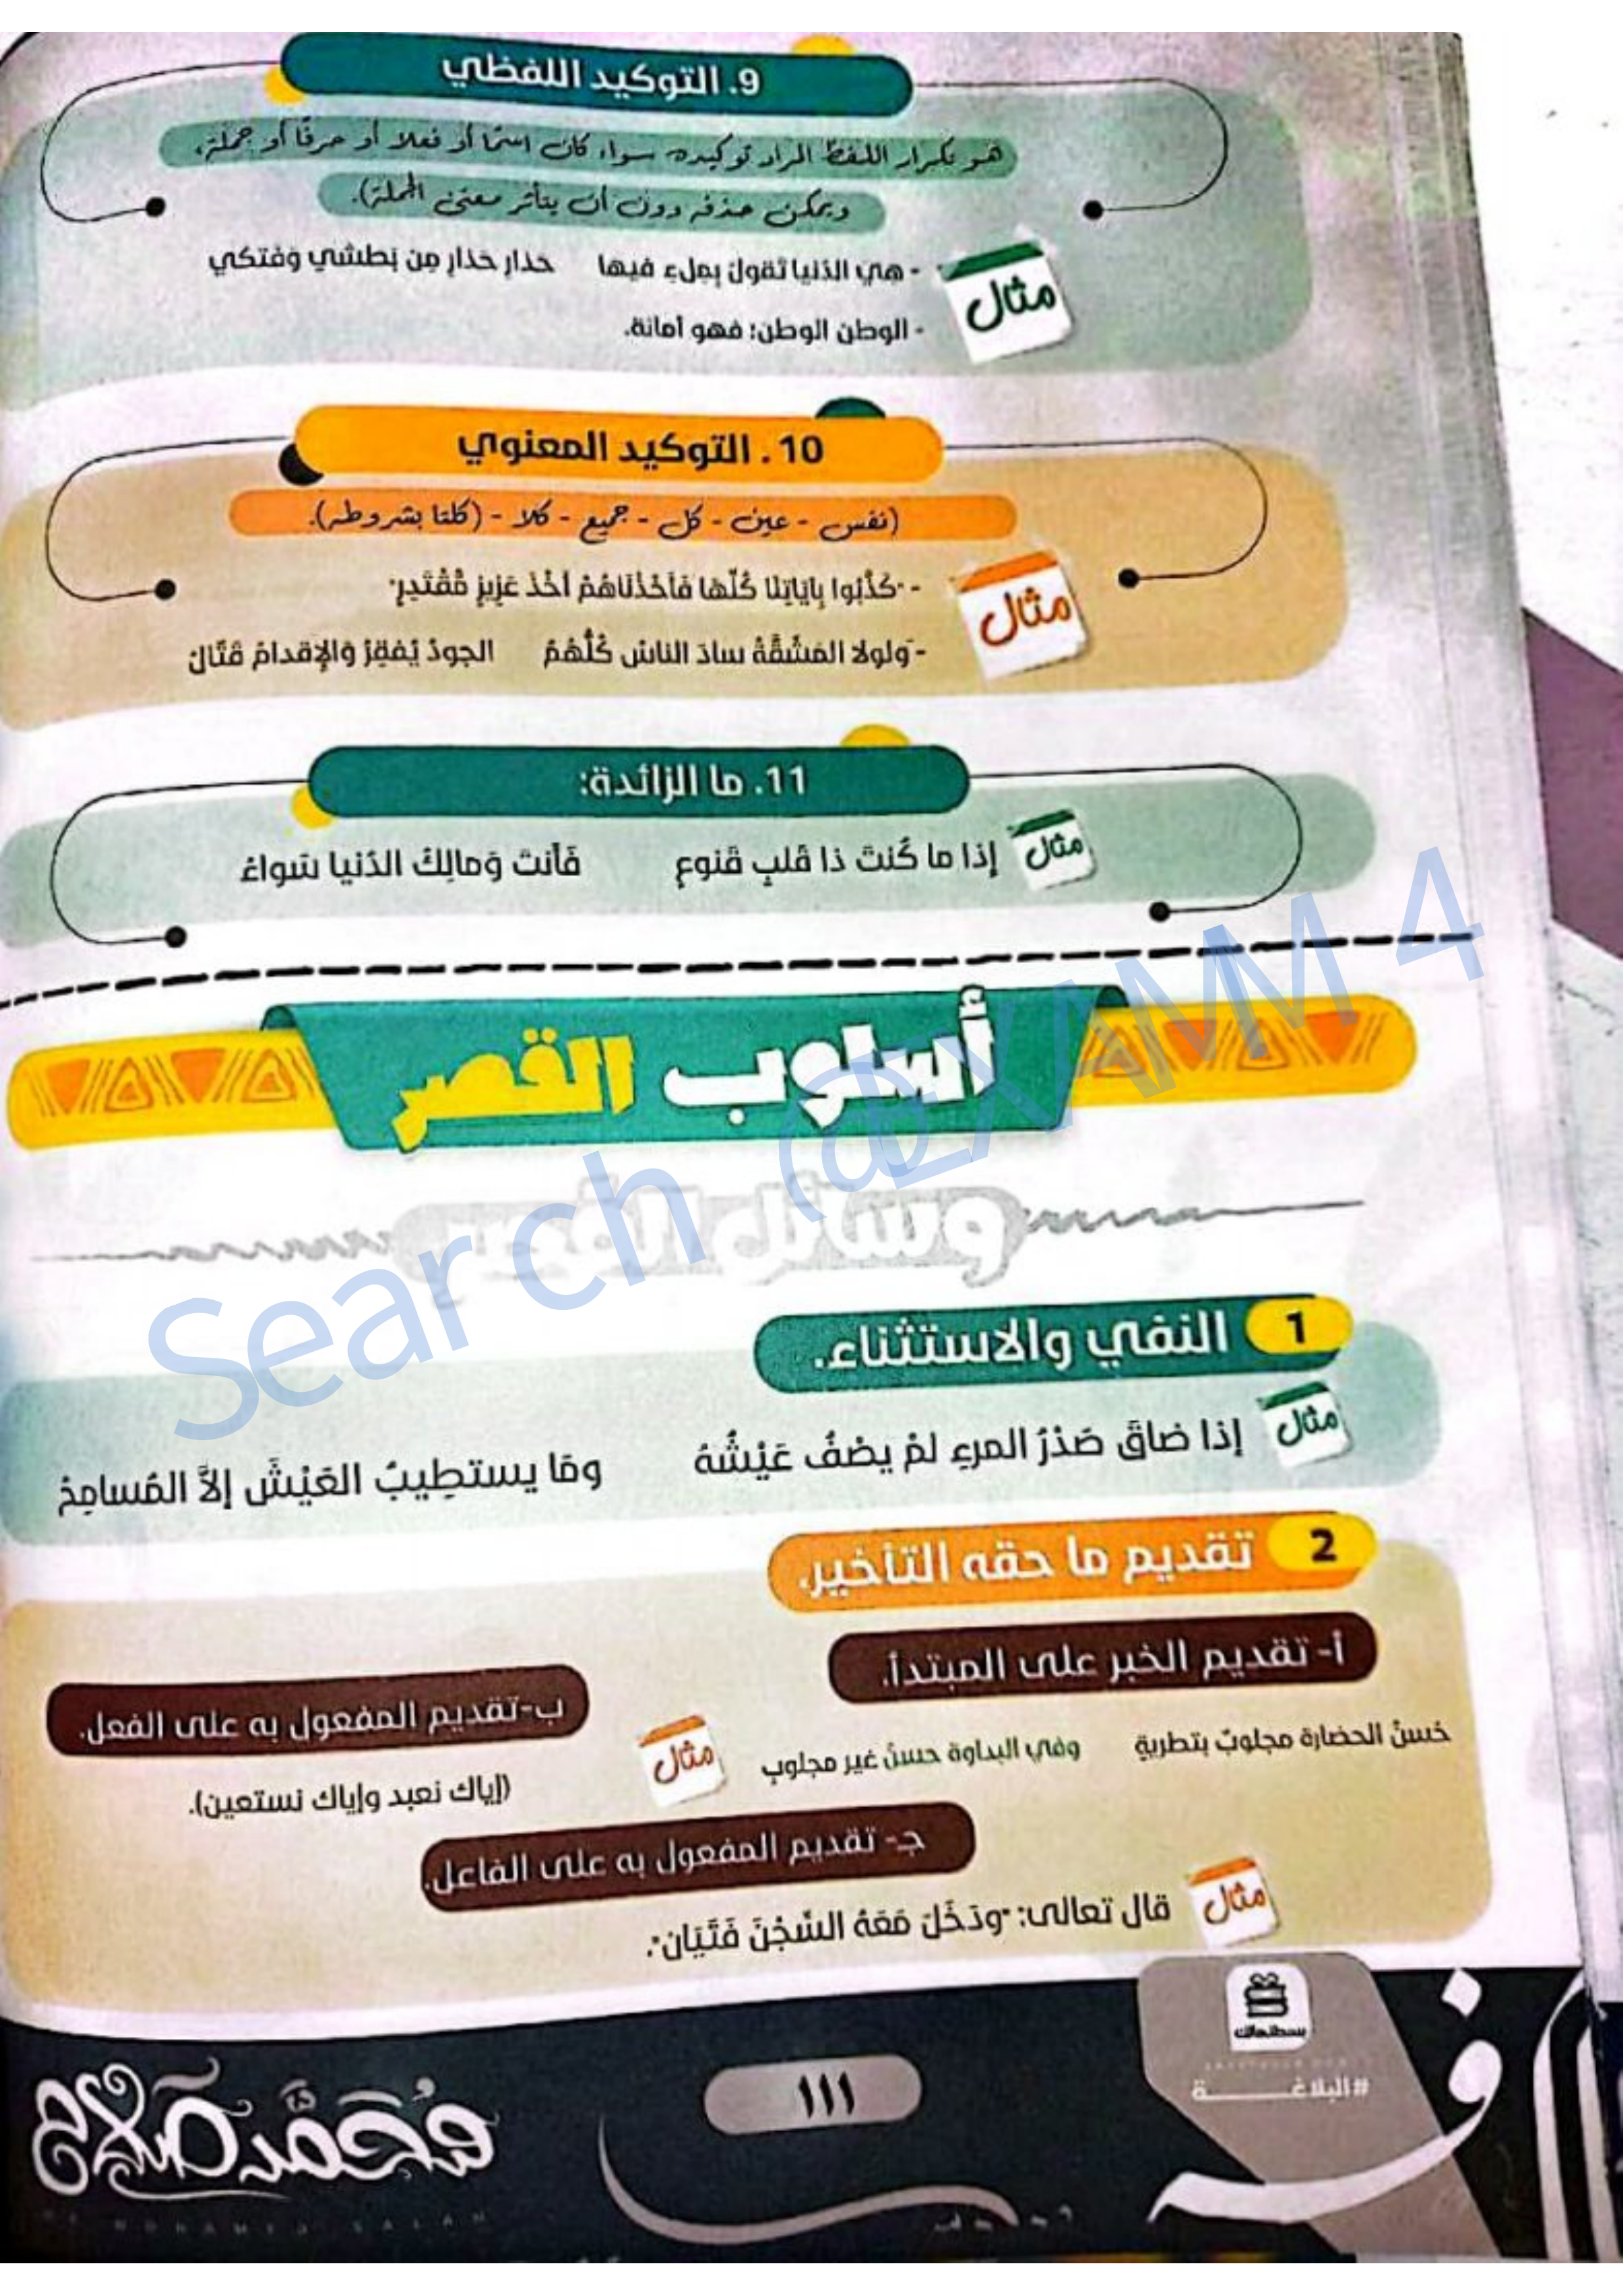 9. التوكيد اللفظي
هو تكرار اللفظ المراد توكيده سواء كان اسمًا أو فعلا أو حرفًا أو جملة،
ويمكن حذفه دون أن يتأثر معنى الجملة).
مثال
- هِيَ الدُنيا تَقولُ بِمِلءِ فيها حَذارِ حَذارِ مِن بَطشي وَفَتكي
- الوطن الوطن؛ فهو أمانة.
10. التوكيد المعنوي
(نفس - عين - كل - جميع - كلا - (كلتا بشروطه).
مثال
- "كَذَّبُوا بِآيَاتِنَا كُلِّهَا فَأَخَذْنَاهُمْ أَخْذَ عَزِيزٍ مُّقْتَدِرٍ"
- وَلولا المَشَقَّةُ سادَ الناسُ كُلُّهُمُ الجودُ يُفقِرُ وَالإِقدامُ قَتّالُ
11. ما الزائدة:
مثال
إذا ما كُنتَ ذا قَلبٍ قَنوعٍ فَأَنتَ وَمالِكُ الدُنيا سَواءُ
أسلوب القصر
وسائل القصر
1 النفي والاستثناء.
مثال
إذا ضاقَ صَدْرُ المرءِ لمْ يصْفُ عَيْشُهُ ومَا يستطِيبُ العَيْشَ إلاَّ المُسامِحُ
2 تقديم ما حقه التأخير.
أ- تقديم الخبر على المبتدأ.
حُسنُ الحضارة مجلوبٌ بتطريةٍ وفي البداوة حسنٌ غير مجلوبِ
ب-تقديم المفعول به على الفعل.
مثال
(إياك نعبد وإياك نستعين).
جـ- تقديم المفعول به على الفاعل.
مثال
قال تعالى: "ودَخَلَ مَعَهُ السِّجْنَ فَتَيَان".
بسطتهالك
#البلاغـــــــة
١١١
محمد صلاح
MOHAMED SALAH
Search @EXAMM 4